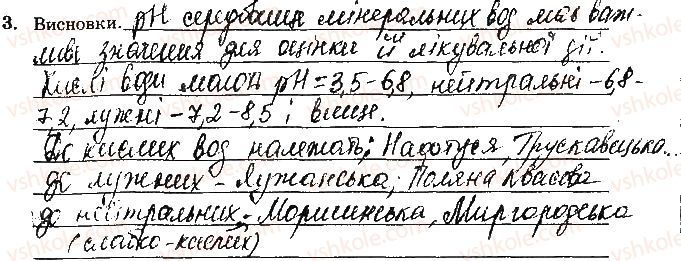 3. Висновки. pH середовища мінеральних вод має важ-
ливе значення для оцінки їй лікувальної дії.
Кислі води мають pH = 3,5-6,8, нейтральні - 6,8-
7,2, лужні - 7,2-8,5 і вище.
До кислих вод належать: Нафтуся, Трускавецька..
до лужних - Лужанська; Поляна Квасова
до нейтральних - Моршинська, Миргородська
(слабо-кислих)